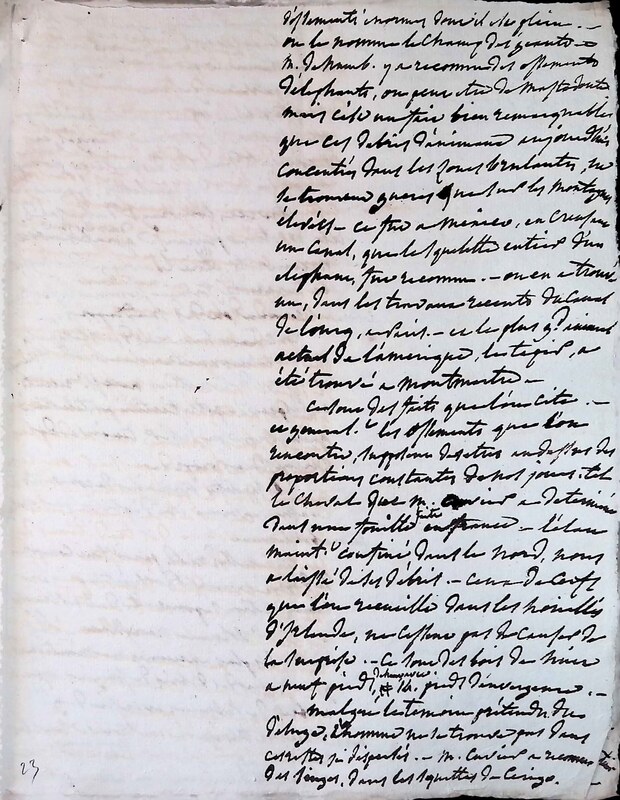 d'ossements énormes dont il est plein. —
on le nomme le Champ des géants —
M. de humb. y a reconnu des ossements
d'éléphants, ou peut etre de Mastodonte
mais c'est un fait bien remarquable
que ces débris d'animaux aujourdhui
concentrés dans les zones brulantes, ne
se trouvent que sur les montagnes
élevées — ce fut a Mexico, en creusant
un Canal, que le squelette entier d'un
elephant, fut reconnu. — on en a trouvé
un, dans les travaux recents du Canal
de l'ourcq, a Paris. — et le plus gd animal
actuel de l'amerique, le tapir, a
été trouvé a montmartre —
ce sont des faits que l'on cite. —
en general. les ossements que l'on
rencontre, supposent des etres au dessus des
proportions constantes de nos jours. tel
le cheval que M. Cuvier a determiné
dans une fouille faite en france — l'élan
maint. confiné dans le nord, nous
a laissé de ses débris. — ceux de Cerfs
que l'on recueille dans les houilles
d'Irlande, ne cessent pas de causer de
la surprise. — ce sont des bois de
a neuf pieds, et 14. pieds d'envergure. —
malgré le temoin prétendu du
deluge, l'homme ne se trouve pas dans
ces restes si dispersés. — M. Cuvier a reconnu
des singes, dans les squelettes de Cerigo.
23